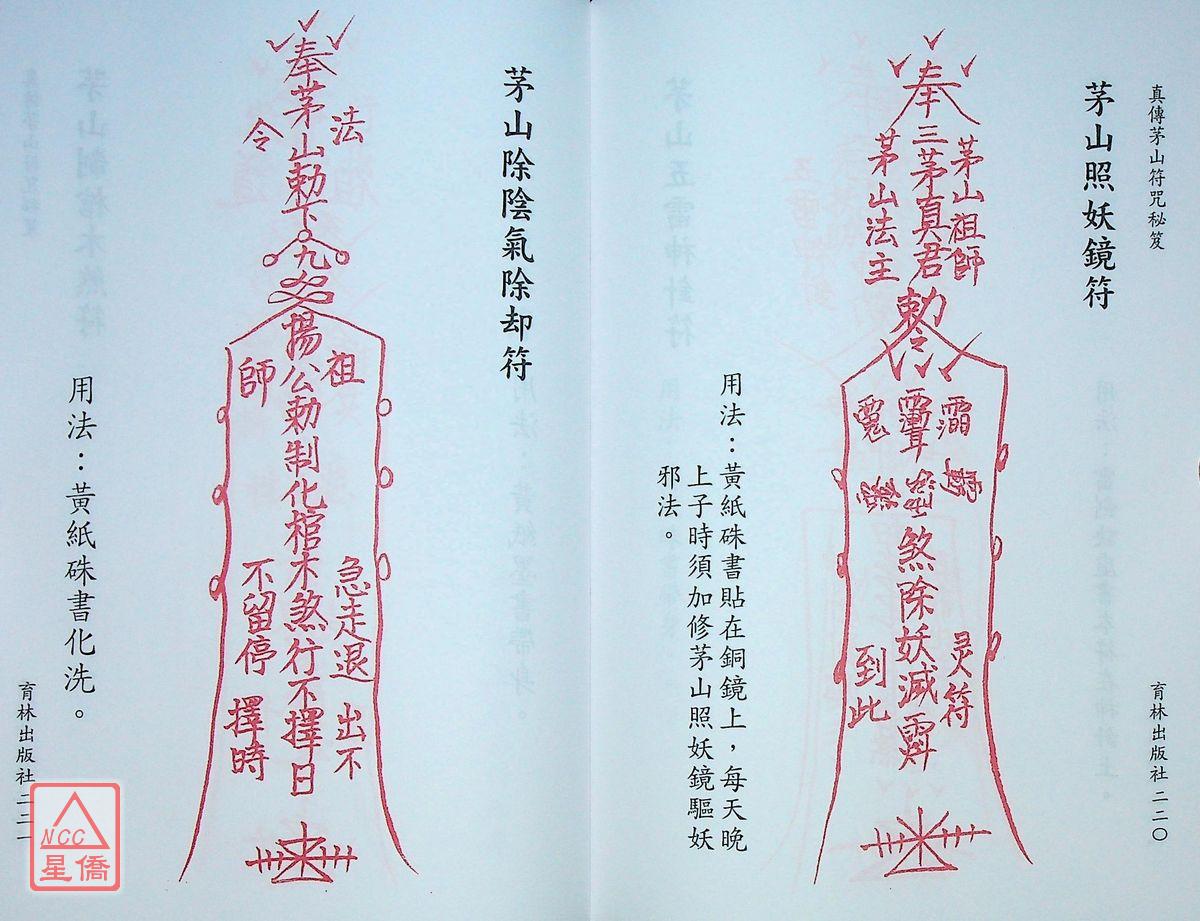 真傳茅山符咒秘笈
育林出版社 二二〇
茅山照妖鏡符
奉
茅山祖師
三茅真君
茅山法主
勅令
煞除妖滅
灵符
到此
用法：黃紙硃書貼在銅鏡上，每天晚
上子時須加修茅山照妖鏡驅妖
邪法。
茅山除陰氣除却符
奉茅山勅下
法
令
九
祖
師
揚公勅制化棺木煞行不擇日
急走退 出不
不留停 擇時
用法：黃紙硃書化洗。
育林出版社 二二一
NCC
星僑